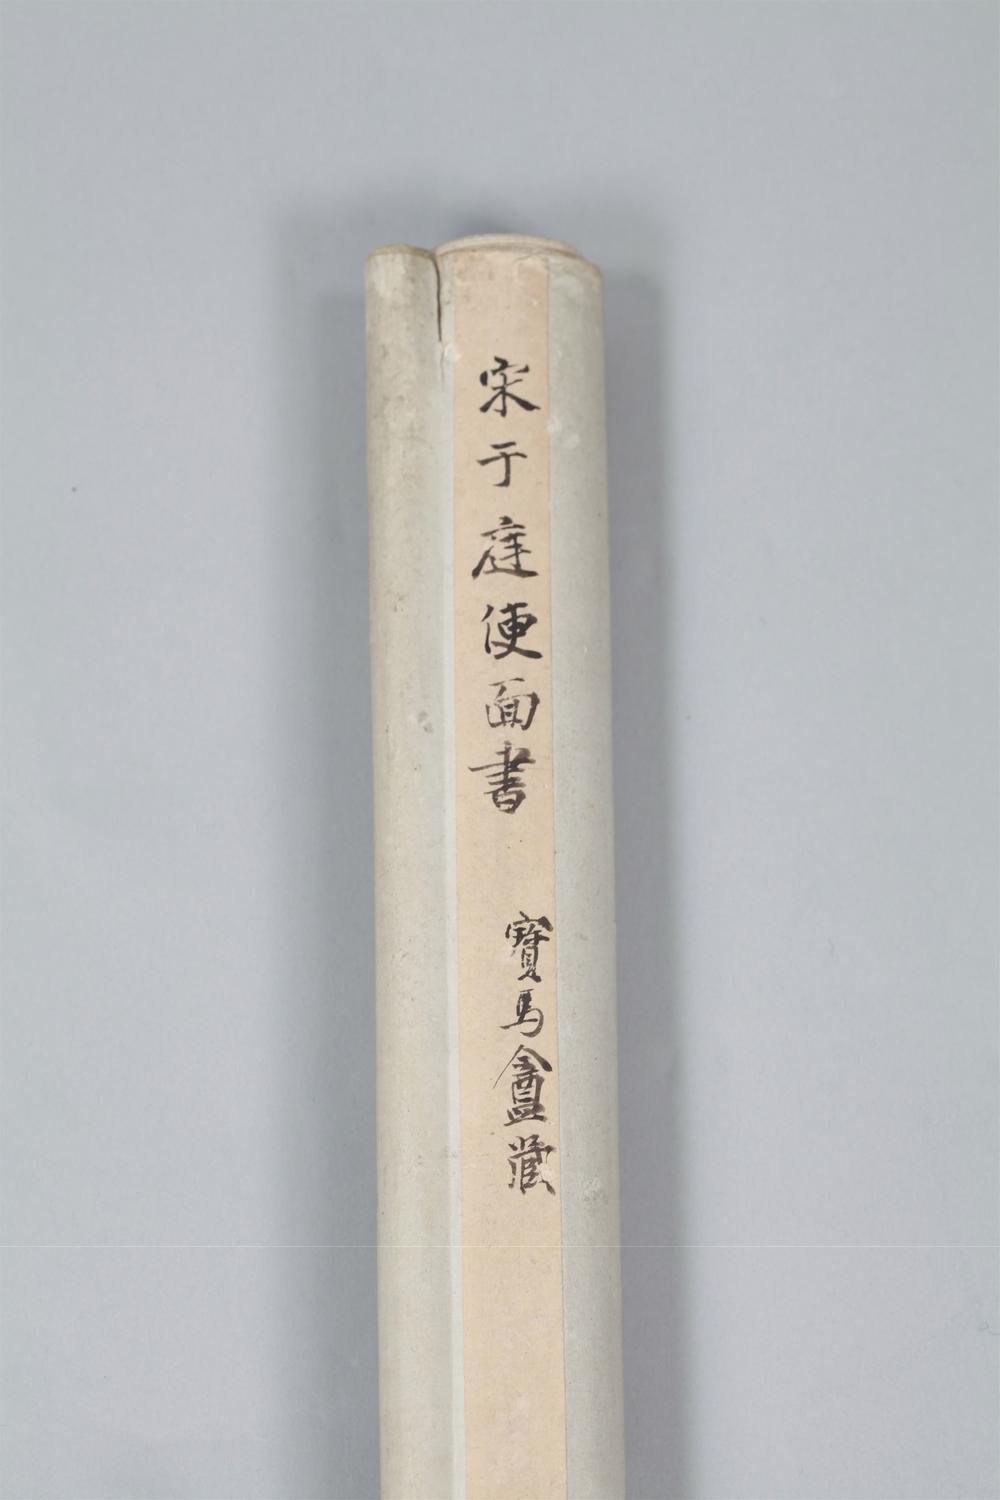 宋于庭便面書
寶馬盦藏